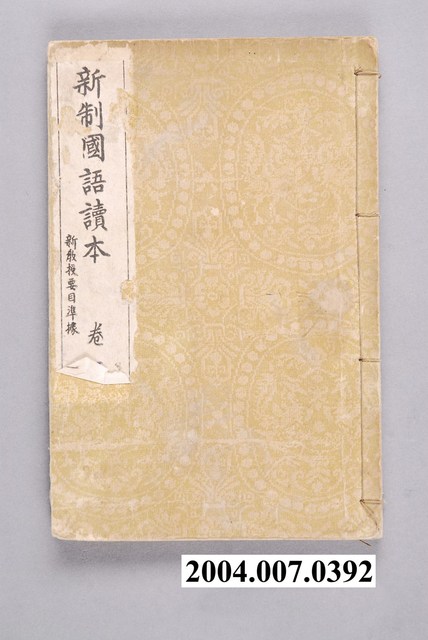 新制國語讀本 卷
新教授要目準據
2004.007.0392